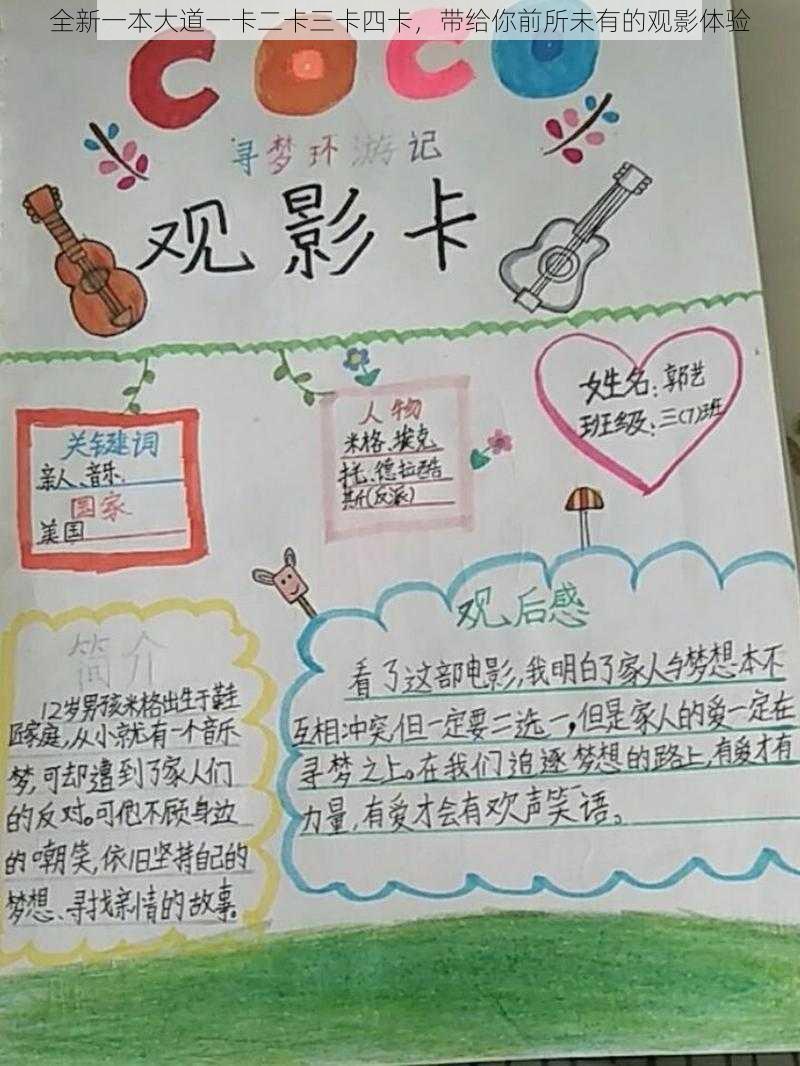 全新一本大道一卡二卡三卡四卡，带给你前所未有的观影体验
COCO
寻梦环游记
观影卡
姓名：郭艺
班级：三(7)班
关键词
亲人、音乐
国家
美国
人物
米格、埃克
托、德拉酷
斯(反派)
简介
12岁男孩米格出生于鞋
匠家庭，从小就有一个音乐
梦，可却遭到了家人们
的反对。可他不顾身边
的嘲笑，依旧坚持自己的
梦想、寻找亲情的故事。
观后感
看了这部电影，我明白了家人与梦想本不
互相冲突，但一定要二选一，但是家人的爱一定在
寻梦之上。在我们追逐梦想的路上，有爱才有
力量，有爱才会有欢声笑语。